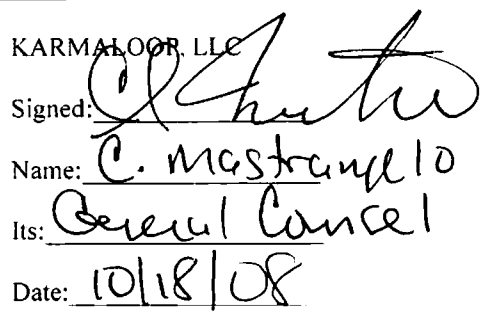 KARMALOOP, LLC
Signed:
Name: C. Mastrangelo
Its: General Counsel
Date: 10/18/08